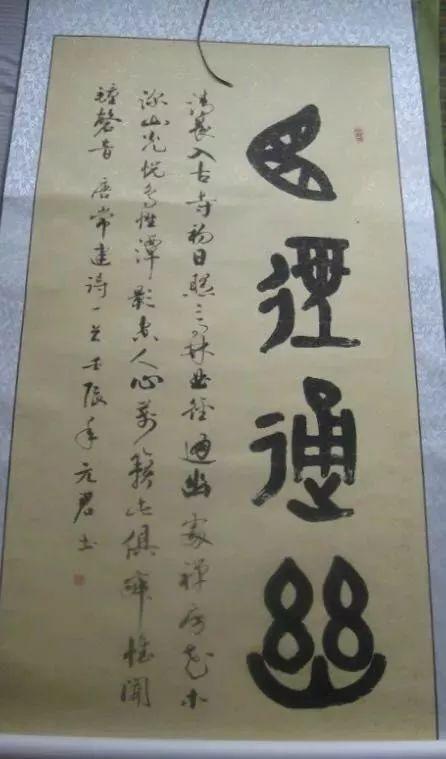 曲徑通幽
清晨入古寺初日照高林曲徑通幽處禪房花木
深山光悦鳥性潭影空人心萬籟此俱寂惟聞
鐘磬音 唐常建詩一首壬辰年元君书